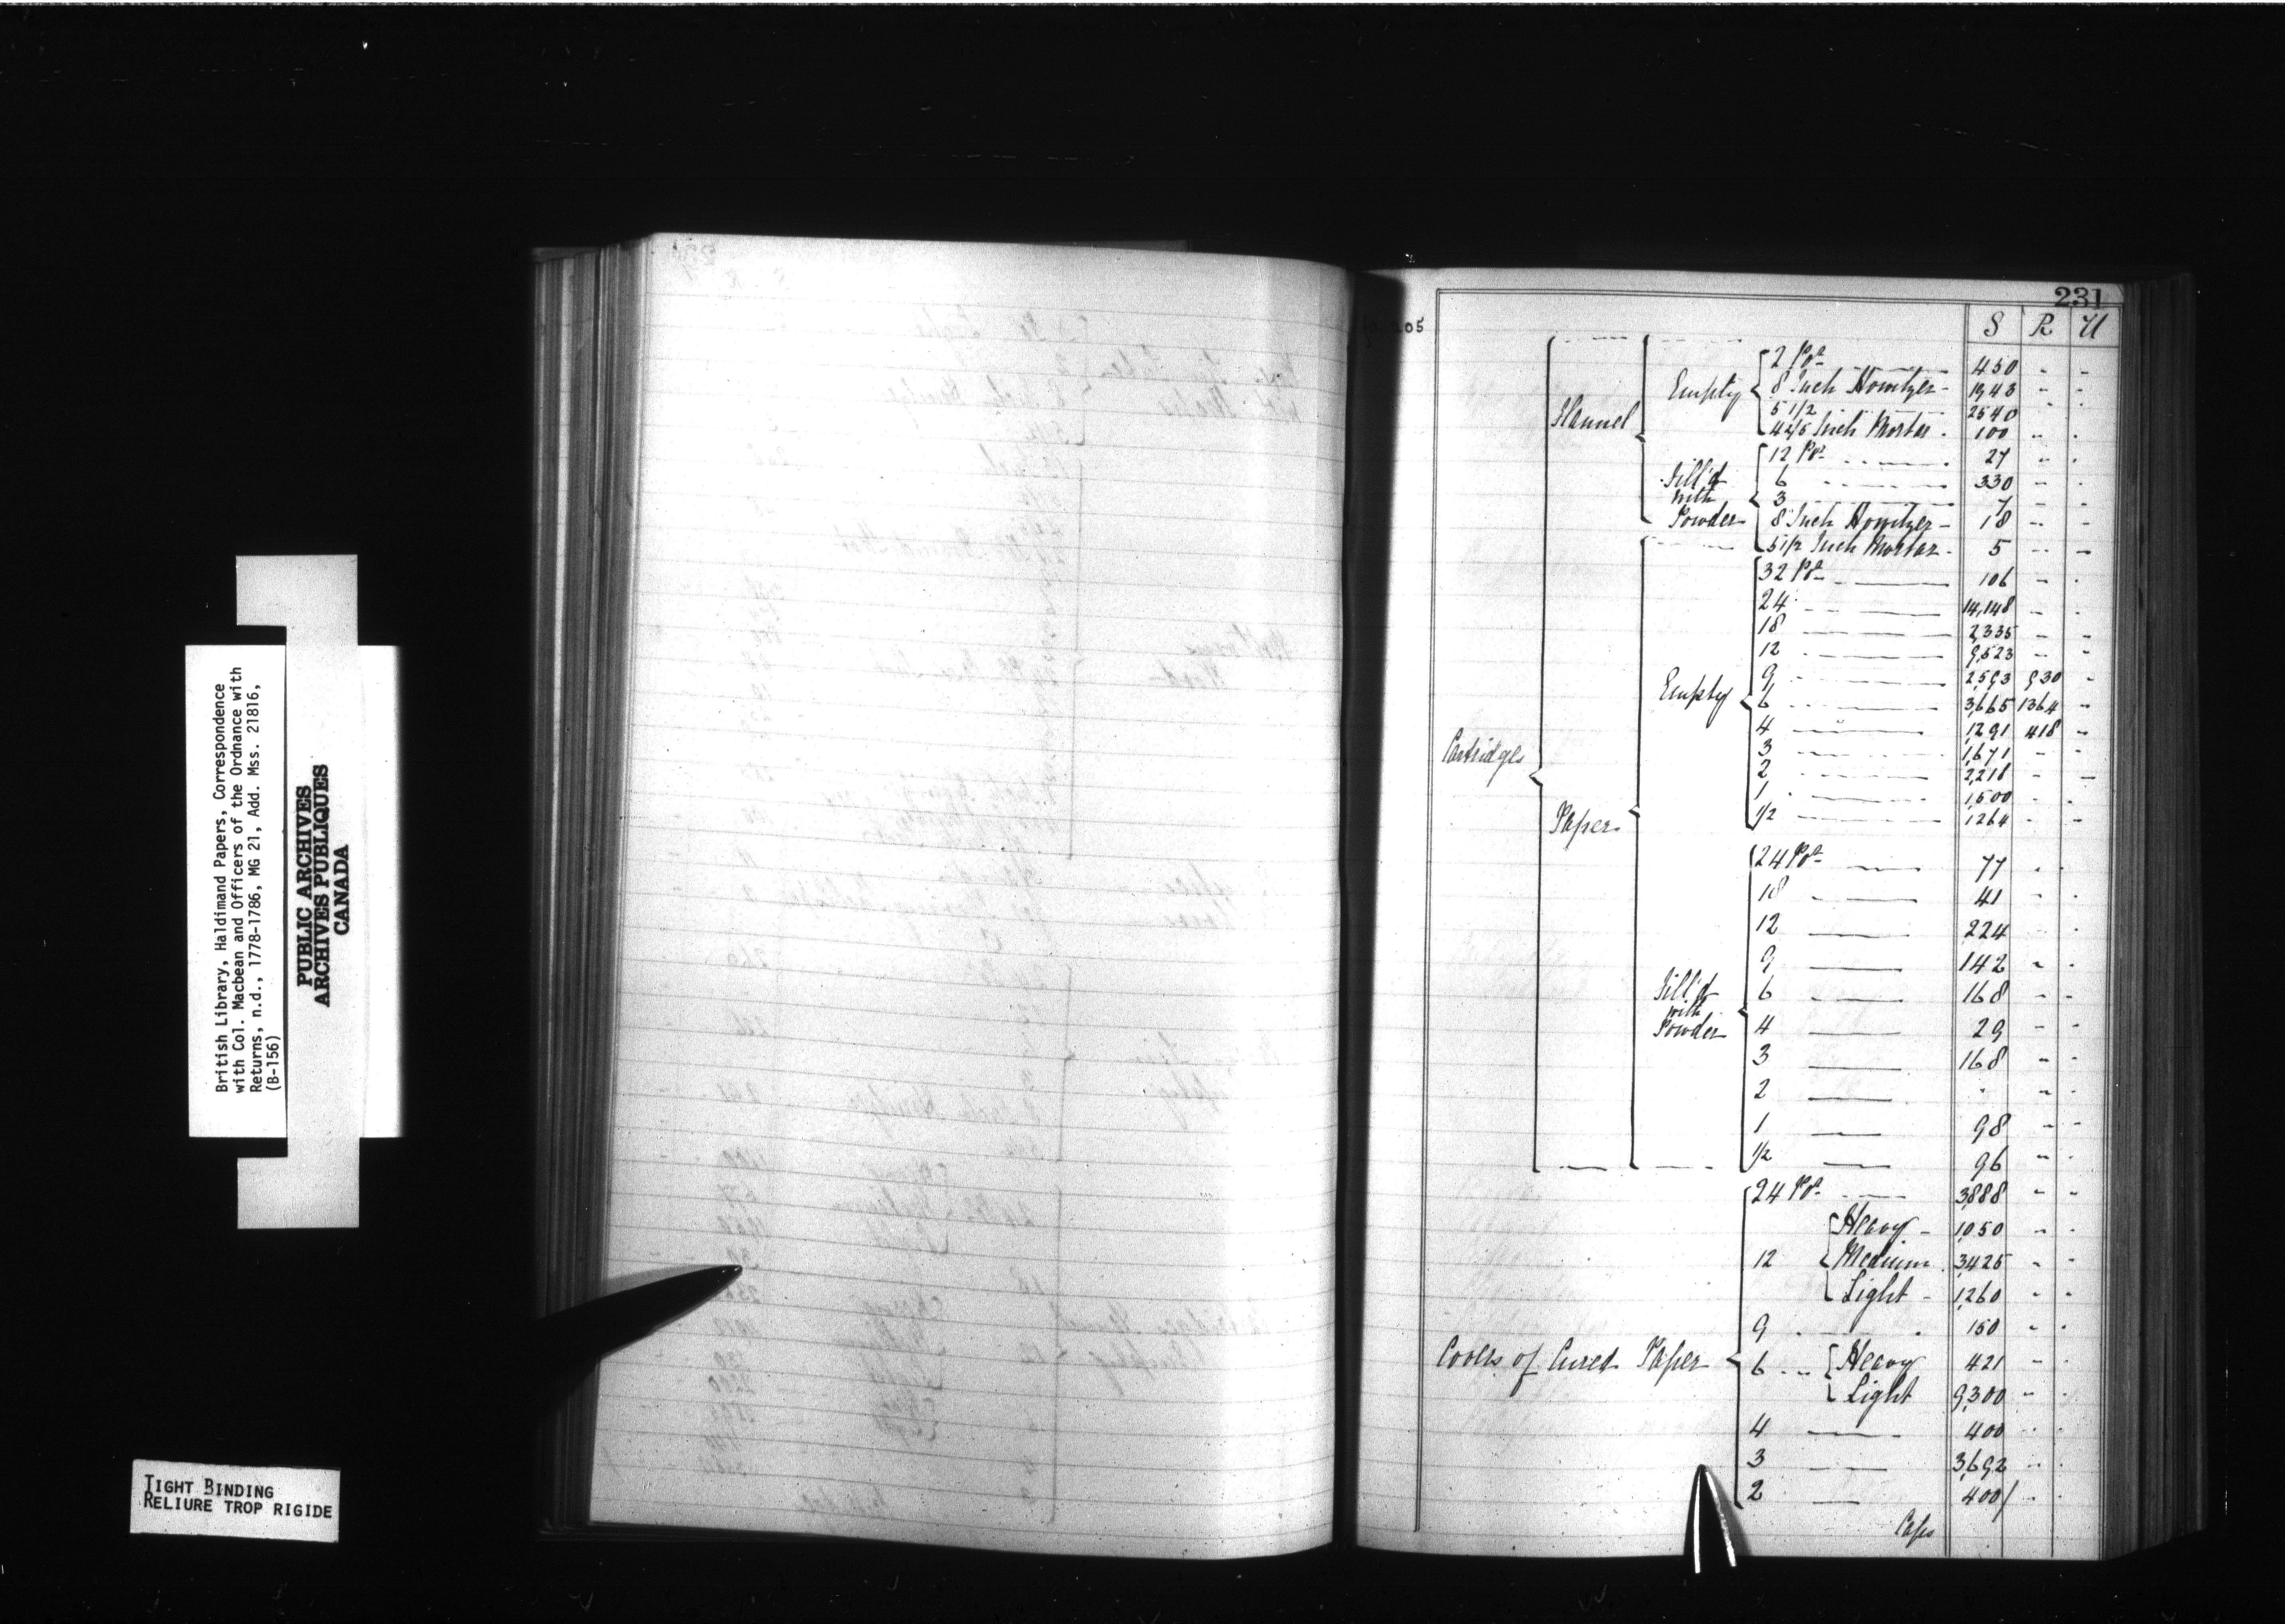 British Library, Haldimand Papers, Correspondence
with Col. Macbean and Officers of the Ordnance with
Returns, n.d., 1778-1786, MG 21, Add. Mss. 21816,
(B-156)
PUBLIC ARCHIVES
ARCHIVES PUBLIQUES
CANADA
TIGHT BINDING
RELIURE TROP RIGIDE
231
S R U
Cartridges
Flannel
Empty
2 Pdr 450 - -
8 Inch Howitzer - 1943 - -
5 1/2 2540 - -
4 2/5 Inch Mortar - 100 - -
Fill'd with Powder
12 Pdr 27 - -
6 330 - -
3 7 - -
8 Inch Howitzer - 18 - -
5 1/2 Inch Mortar - 5 - -
Paper
Empty
32 Pdr 106 - -
24 14,148 - -
18 2,335 - -
12 9,523 - -
9 2,593 930 -
6 3,665 1364 -
4 1,291 418 -
3 1,671 - -
2 2,218 - -
1 1,500 - -
1/2 1264 - -
Fill'd with Powder
24 Pdr 77 - -
18 41 - -
12 224 - -
9 142 - -
6 168 - -
4 29 - -
3 168 - -
2 - - -
1 98 - -
1/2 96 - -
Covers of Cured Paper
24 Pdr 3,888 - -
12
Heavy - 1,050 - -
Medium 3,425 - -
Light - 1,260 - -
9 150 - -
6
Heavy 421 - -
Light 9,300 - -
4 400 - -
3 3,692 - -
2 400 - -
Caps